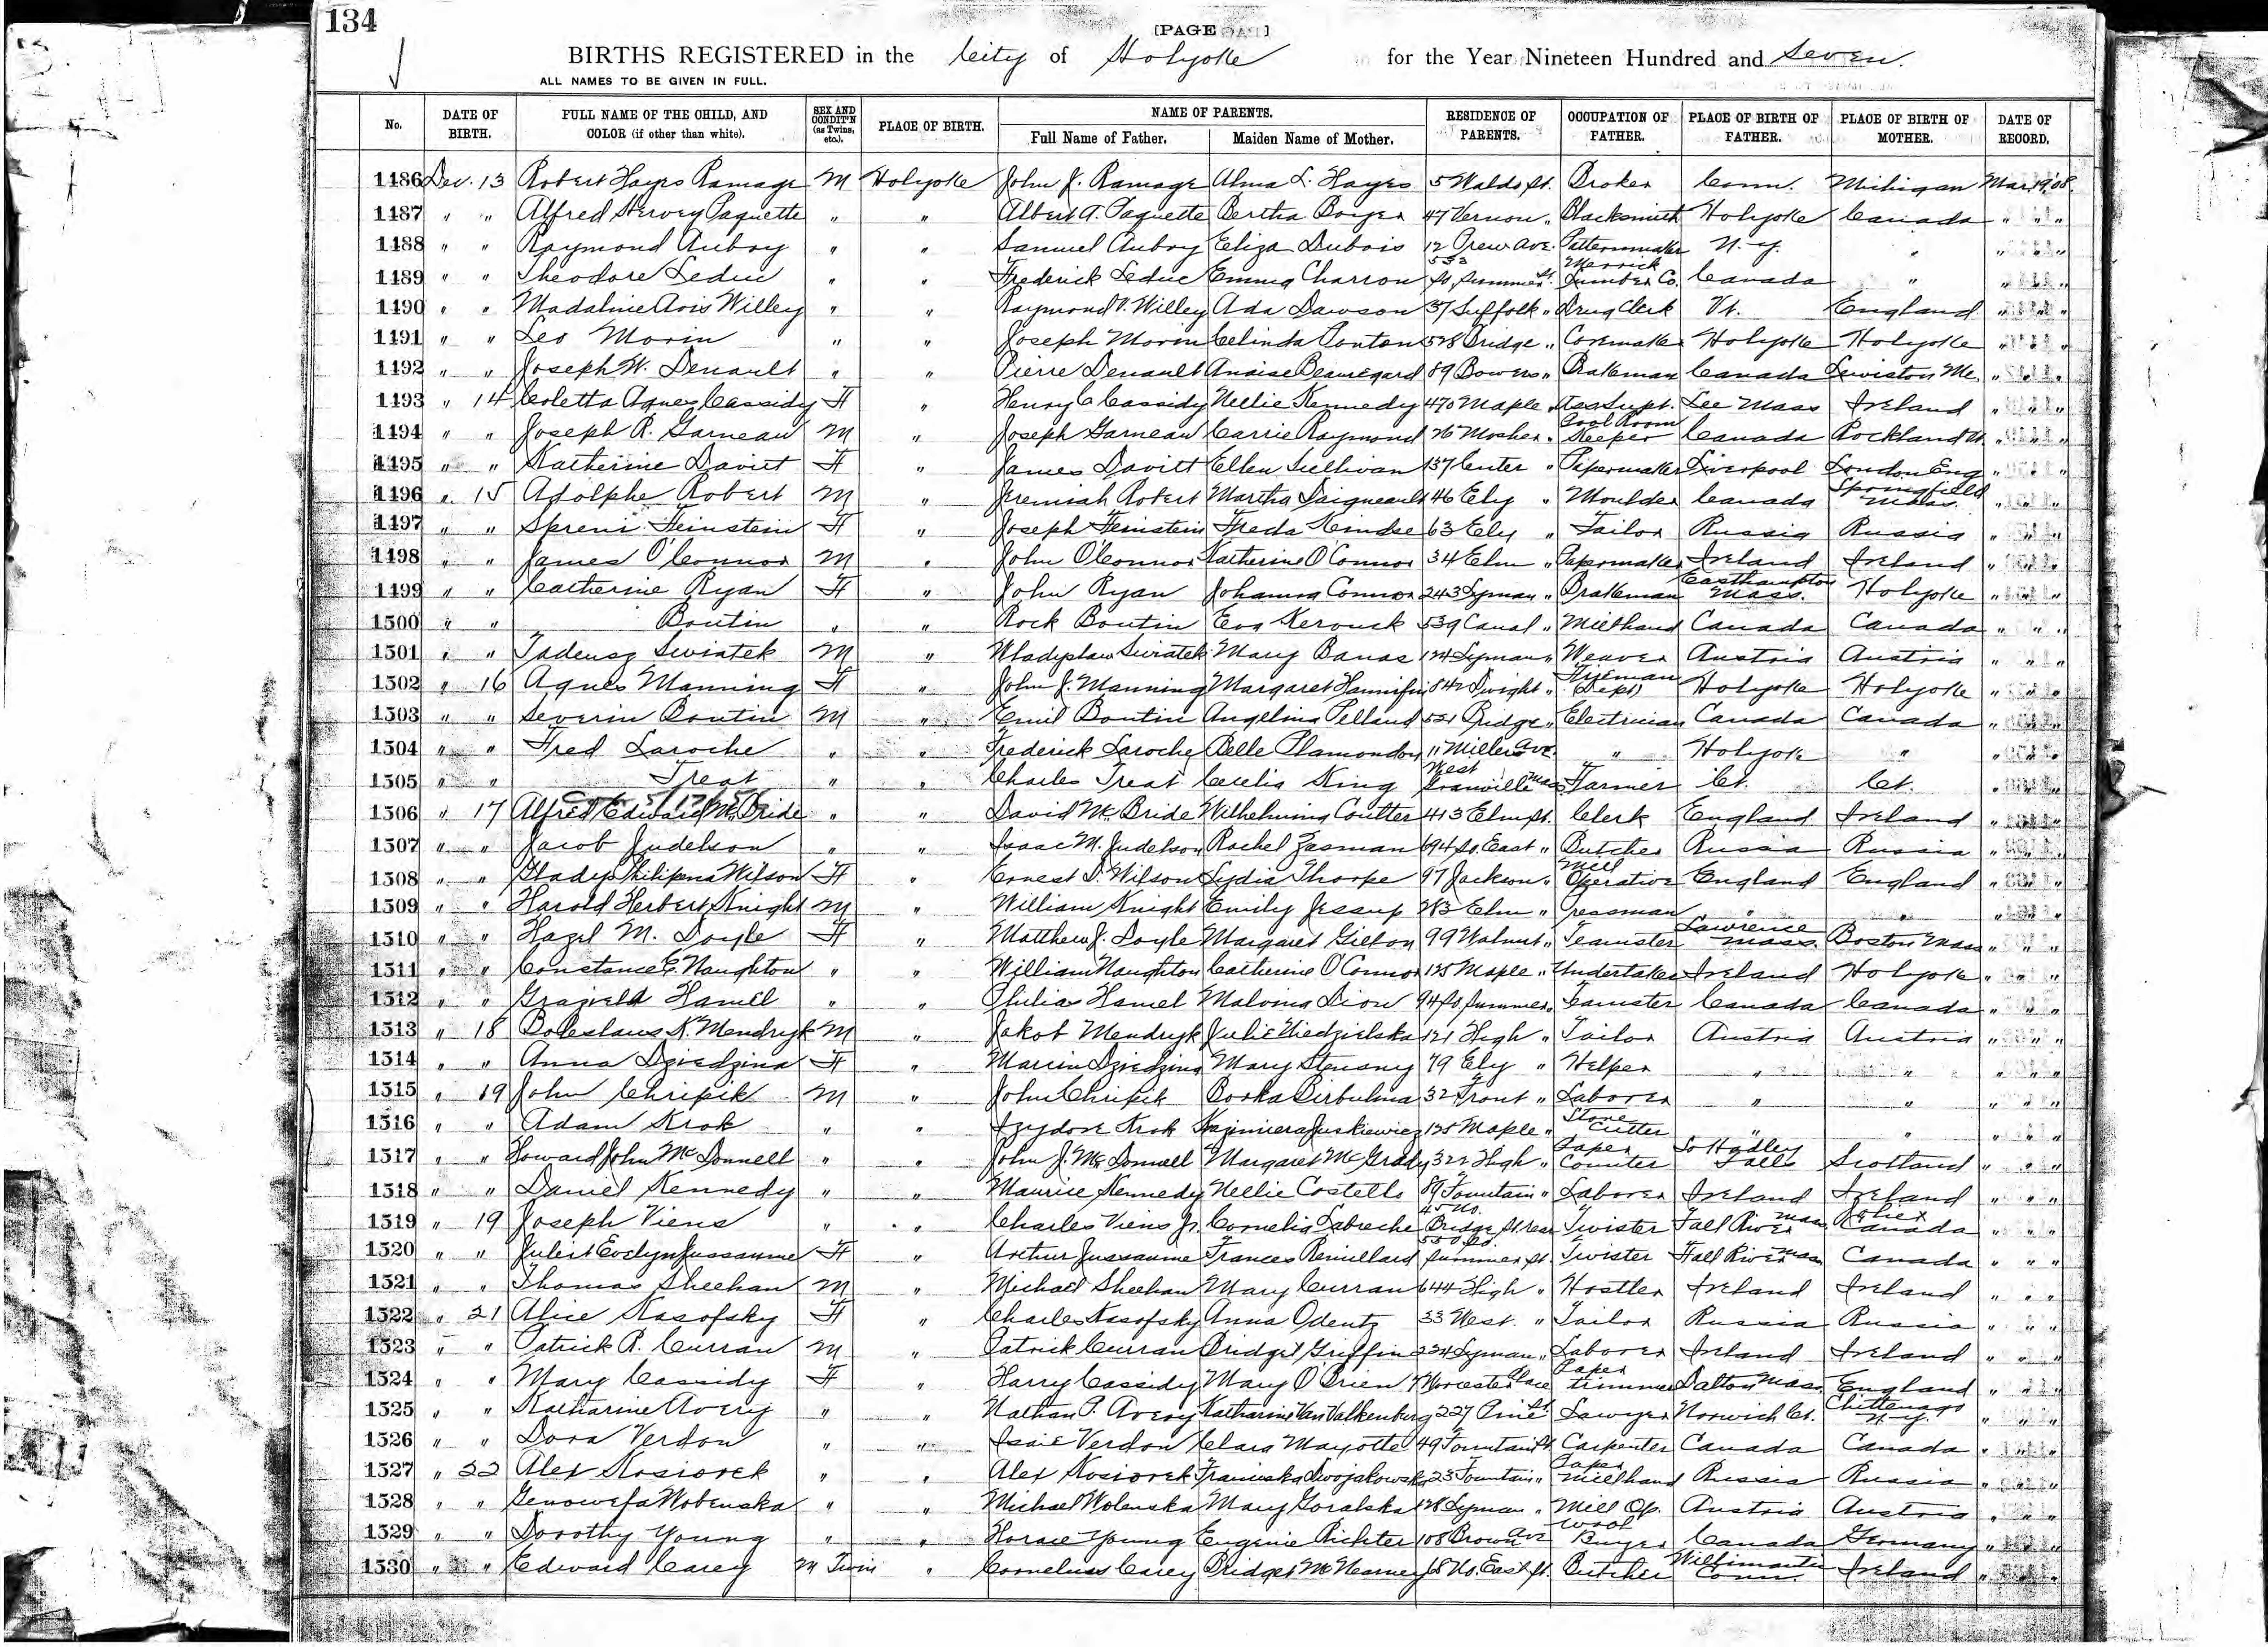 134
[PAGE ]
BIRTHS REGISTERED in the City of Holyoke for the Year Nineteen Hundred and Seven.
ALL NAMES TO BE GIVEN IN FULL.
No. DATE OF BIRTH. FULL NAME OF THE CHILD, AND COLOR (if other than white). SEX AND CONDIT'N (as Twins, etc.). PLACE OF BIRTH. NAME OF PARENTS. Full Name of Father. Maiden Name of Mother. RESIDENCE OF PARENTS. OCCUPATION OF FATHER. PLACE OF BIRTH OF FATHER. PLACE OF BIRTH OF MOTHER. DATE OF RECORD.
1486 Dec. 13 Robert Hayes Ramage M Holyoke John J. Ramage Alma L. Hayes 5 Waldo St. Broker Conn. Michigan Mar. 19, '08.
1487 " " Alfred Hervey Paquette " " Albert A. Paquette Bertha Boyer 47 Vernon " Blacksmith Holyoke Canada " " "
1488 " " Raymond Aubry " " Samuel Aubry Eliza Dubois 12 Prew Ave. Patternmaker N.Y. " " " "
1489 " " Theodore Leduc " " Frederick Leduc Emma Charron 553 So. Summer St. Merrick Lumber Co. Canada " " " "
1490 " " Madaline Avis Willey " " Raymond V. Willey Ada Dawson 37 Suffolk " Drug Clerk Vt. England " " "
1491 " " Leo Morin " " Joseph Morin Celinda Ponton 528 Bridge " Coremaker Holyoke Holyoke " " "
1492 " " Joseph W. Denault " " Pierre Denault Anaise Beauregard 89 Bowers " Brakeman Canada Lewiston Me. " " "
1493 " 14 Coletta Agnes Cassidy F " Henry C Cassidy Nellie Kennedy 470 Maple " Ass Supt. Lee Mass Ireland " " "
1494 " " Joseph R. Garneau M " Joseph Garneau Carrie Raymond 26 Mosher " Pool Room Keeper Canada Rockland " " "
1495 " " Katherine Davitt F " James Davitt Ellen Sullivan 137 Center " Papermaker Liverpool London Eng " " "
1496 " 15 Adolphe Robert M " Jeremiah Robert Martha Daigneault 46 Ely " Moulder Canada Springfield Mass. " " "
1497 " " Spreni Feinstein F " Joseph Feinstein Freda Kindse 63 Ely " Tailor Russia Russia " " "
1498 " " James O'Connor M " John O'Connor Katherine O'Connor 34 Elm " Papermaker Ireland Ireland " " "
1499 " " Catherine Ryan F " John Ryan Johanna Connor 243 Lyman " Brakeman Easthampton Mass. Holyoke " " "
1500 " " Boutin " " Rock Boutin Eva Kerouck 539 Canal " Millhand Canada Canada " " "
1501 " " Tadeusz Swiatek M " Wladyslaw Swiatek Mary Banas 124 Lyman " Weaver Austria Austria " " "
1502 " 16 Agnes Manning F " John J. Manning Margaret Hannifin 842 Dwight " Fireman (Dept) Holyoke Holyoke " " "
1503 " " Severin Boutin M " Emil Boutin Angelina Pelland 521 Bridge " Electrician Canada Canada " " "
1504 " " Fred Laroche " " Frederick Laroche Belle Plamondon 11 Miller Ave. " Holyoke " " " "
1505 " " Treat " " Charles Treat Cecelia King West Granville Mass Farmer Ct. Ct. " " "
1506 " 17 Alfred Edward McBride " " David McBride Wilhelmina Coulter 413 Elm St. Clerk England Ireland " " "
1507 " " Jacob Judelson " " Isaac M. Judelson Rachel Zasman 694 So. East " Butcher Russia Russia " " "
1508 " " Gladys Philipena Wilson F " Ernest D. Wilson Lydia Thorpe 97 Jackson " Mill Operative England England " " "
1509 " " Harold Herbert Knight M " William Knight Emily Jessup 283 Elm " Pressman " " " " "
1510 " " Hazel M. Doyle F " Matthew J. Doyle Margaret Gilton 99 Walnut " Teamster Lawrence Mass. Boston Mass " " "
1511 " " Constance E. Naughton " " William Naughton Catherine O'Connor 125 Maple " Undertaker Ireland Holyoke " " "
1512 " " Grazield Hamel " " Philias Hamel Malvina Dion 94 So. Summer " Teamster Canada Canada " " "
1513 " 18 Boleslaus K. Mendryk M " Jakob Mendryk Julie Niedzielska 121 High " Tailor Austria Austria " " "
1514 " " Anna Dziedzina F " Marcin Dziedzina Mary Stensny 79 Ely " Helper " " " " "
1515 " 19 John Chripik M " John Chripik Borka Birbulina 32 Front " Laborer " " " " "
1516 " " Adam Krok " " Izydore Krok Kazimiera Juskiewicz 125 Maple " Stone Cutter " " " " "
1517 " " Howard John McDonnell " " John J. McDonnell Margaret McGrady 322 High " Paper Counter So Hadley Falls Scotland " " "
1518 " " Daniel Kennedy " " Maurice Kennedy Nellie Costello 89 Fountain " Laborer Ireland Ireland " " "
1519 " 19 Joseph Viens " " Charles Viens Jr. Cornelia Labreche 45 No. Bridge St rear Twister Fall River Mass Canada " " "
1520 " " Juliet Evelyn Jussaume F " Arthur Jussaume Frances Remillard 550 So. Summer St. Twister Fall River Mass Canada " " "
1521 " " Thomas Sheehan M " Michael Sheehan Mary Curran 644 High " Hostler Ireland Ireland " " "
1522 " 21 Alice Kasofsky F " Charles Kasofsky Anna Odentz 33 West " Tailor Russia Russia " " "
1523 " " Patrick R. Curran M " Patrick Curran Bridget Griffin 224 Lyman " Laborer Ireland Ireland " " "
1524 " " Mary Cassidy F " Harry Cassidy Mary O'Brien 7 Worcester Place Paper trimmer Dalton Mass. England " " "
1525 " " Katharine Avery " " Nathan P. Avery Katharine Van Valkenburg 227 Pine St. Lawyer Norwich Ct. Chittenago N.Y. " " "
1526 " " Dora Verdon " " Isaie Verdon Clara Mayotte 49 Fountain St. Carpenter Canada Canada " " "
1527 " 22 Alex Kosiorek " " Alex Kosiorek Franciska Swojakowska 23 Fountain " Paper Millhand Russia Russia " " "
1528 " " Genowefa Wobenska " " Michael Wolenska Mary Goralska 128 Lyman " Mill Op. Austria Austria " " "
1529 " " Dorothy Young " " Horace Young Eugenie Richter 108 Brown Ave Wool Buyer Canada Germany " " "
1530 " " Edward Carey M Twin " Cornelius Carey Bridget McNearney 68 No. East St. Butcher Willimantic Conn. Ireland " " "